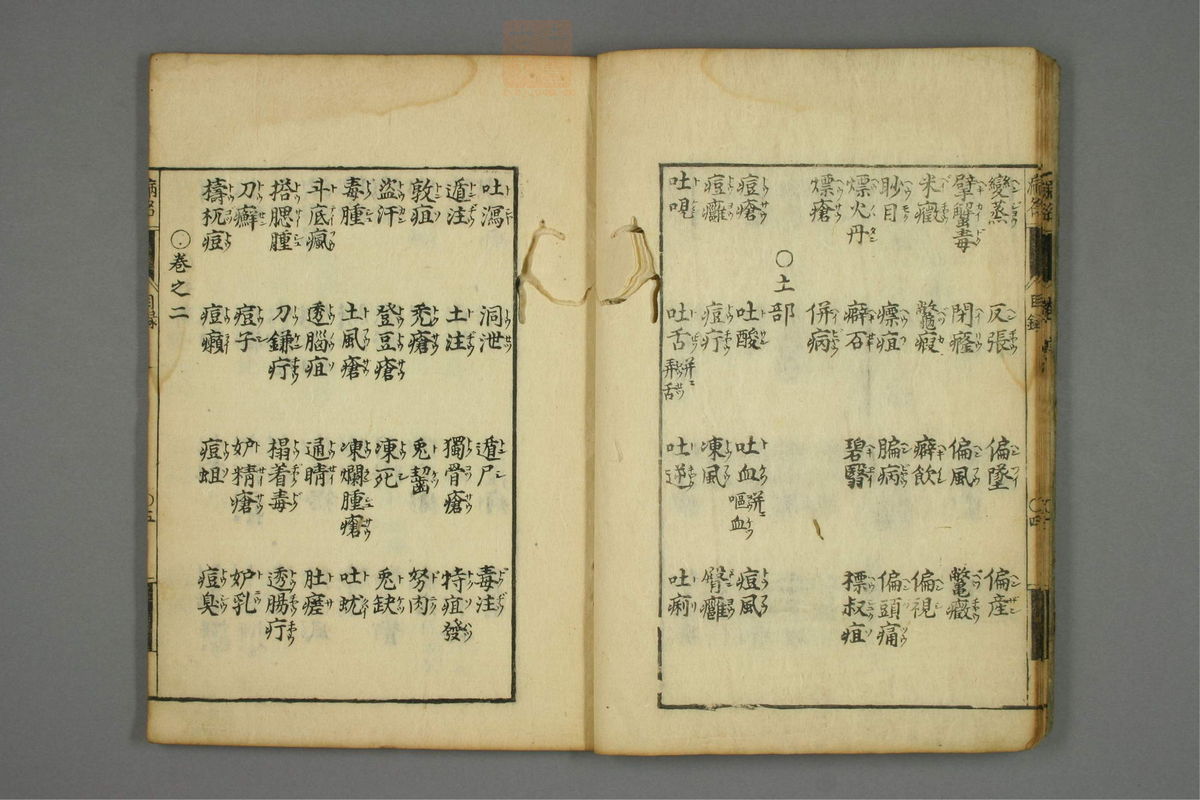 變蒸 反張 偏墜 偏産
擘蟹毒 閉癃 偏風 鼈癥
米癥 鼈瘕 癖飲 偏視
眇目 瘭疽 臈病 偏頭痛
熛火丹 癖石 碧翳 標叔疽
熛瘡 併病
〇土部
痘瘡 吐酸 吐血 併ニ嘔血 痘風
痘癰 痘疔 凍風 臀癰
吐哯 吐舌 併ニ弄舌 吐逆 吐痢
吐瀉 洞泄 遁尸 毒注
遁注 土注 獨骨瘡 特疽發
敦疽 禿瘡 兎齧 努肉
盜汗 登豆瘡 凍死 兎缺
毒腫 土風瘡 凍爛腫瘡 吐蚘
斗底瘋 透腦疽 通睛 肚瘥
搭腮腫 刀鎌疔 搨着毒 透腸疔
刀癬 痘子 妒精瘡 妒乳
檮杌痘 痘癩 痘蛆 痘臭
〇卷之二
目録